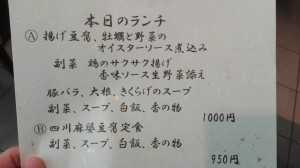 本日のランチ
Ⓐ 揚げ豆腐、牡蠣と野菜の
オイスターソース煮込み
副菜 鶏のサクサク揚げ
香味ソース生野菜添え
豚バラ、大根、きくらげのスープ
副菜、スープ、白飯、香の物
1000円
Ⓑ 四川麻婆豆腐定食
副菜、スープ、白飯、香の物
950円